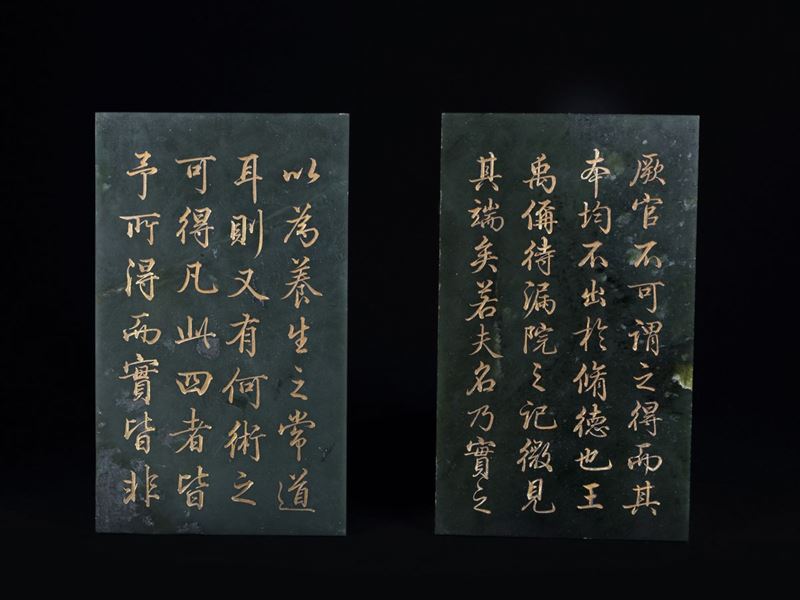 厥官不可謂之得而其
本均不出於脩德也王
禹偁待漏院之記微見
其端矣若夫名乃實之
以為養生之常道
耳則又有何術之
可得凡此四者皆
予所得而實皆非